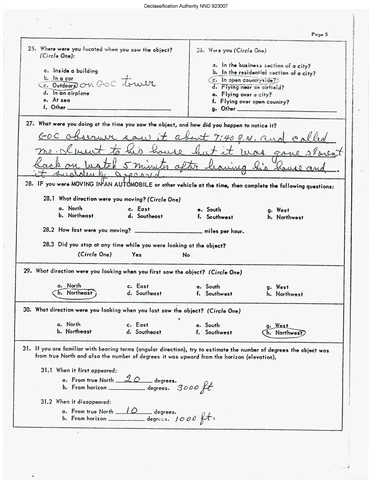 Declassification Authority NND 923007
Page 5
25. Where were you located when you saw the object?
(Circle One):
a. Inside a building
b. In a car
c. Outdoors on GOC tower
d. In an airplane
e. At sea
f. Other
26. Were you (Circle One)
a. In the business section of a city?
b. In the residential section of a city?
c. In open countryside?
d. Flying near an airfield?
e. Flying over a city?
f. Flying over open country?
g. Other
27. What were you doing at the time you saw the object, and how did you happen to notice it?
GOC observer saw it about 7:40 P.M. and called
me. I went to his house but it was gone. I went
back on watch 5 minutes after leaving his house and
it suddenly appeared.
28. IF you were MOVING IN AN AUTOMOBILE or other vehicle at the time, then complete the following questions:
28.1 What direction were you moving? (Circle One)
a. North c. East e. South g. West
b. Northeast d. Southeast f. Southwest h. Northwest
28.2 How fast were you moving? miles per hour.
28.3 Did you stop at any time while you were looking at the object?
(Circle One) Yes No
29. What direction were you looking when you first saw the object? (Circle One)
a. North c. East e. South g. West
b. Northeast d. Southeast f. Southwest h. Northwest
30. What direction were you looking when you last saw the object? (Circle One)
a. North c. East e. South g. West
b. Northeast d. Southeast f. Southwest h. Northwest
31. If you are familiar with bearing terms (angular direction), try to estimate the number of degrees the object was
from true North and also the number of degrees it was upward from the horizon (elevation).
31.1 When it first appeared:
a. From true North 20 degrees.
b. From horizon degrees. 3000 ft
31.2 When it disappeared:
a. From true North 10 degrees.
b. From horizon degrees. 1000 ft.